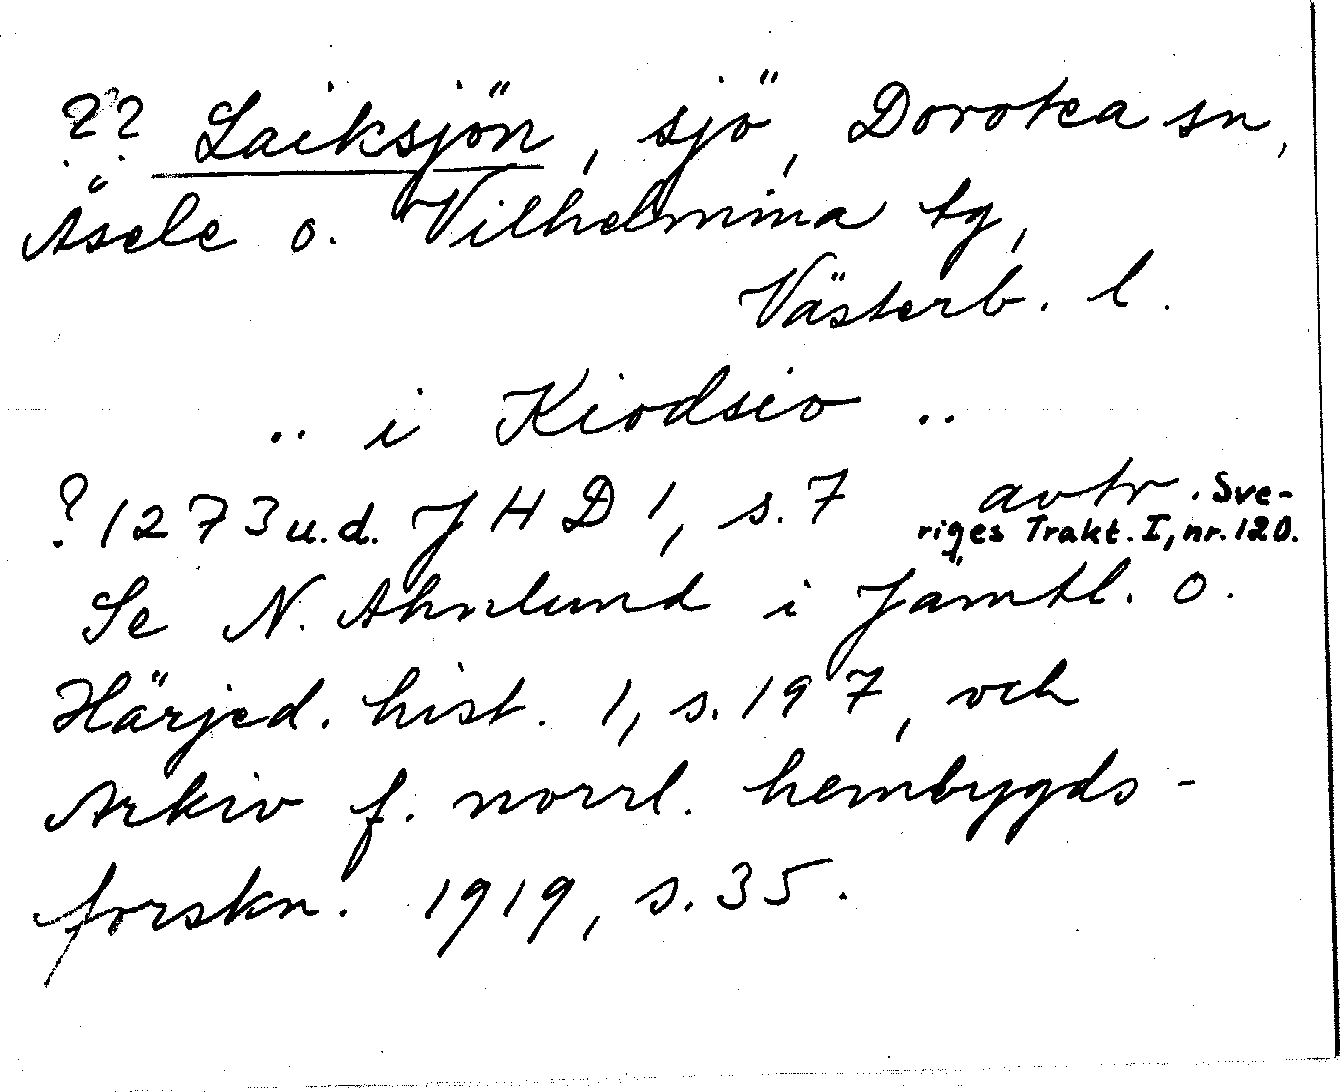 ?? Laiksjön, sjö, Dorotea sn,
Åsele o. Vilhelmina tg,
Västerb. l.
.. i Kiodsio ..
? 1273 u.d. JHD 1, s. 7 avtr. Sve-
riges Trakt. I, nr. 120.
Se N. Ahnlund i Jämtl. o.
Härjed. hist. 1, s. 197, och
Arkiv f. norrl. hembygds-
forskn. 1919, s. 35.